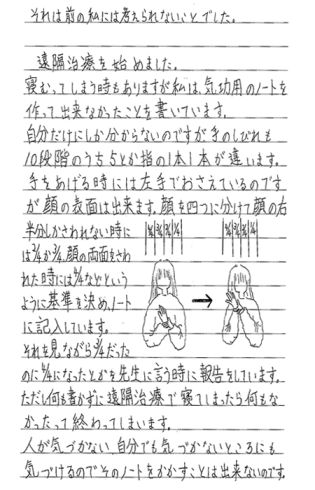 それは前の私には考えられないことでした。
遠隔治療を始めました。
寝むってしまう時もありますが私は、気功用のノートを
作って出来なかったことを書いています。
自分だけにしか分からないのですが手のしびれも
10段階のうち5とか指の1本1本が違います。
手をあげる時には左手でおさえているのです
が顔の表面は出来ます。顔を四つに分けて顔の右
半分しかさわれない時に
は2/4か3/4、顔の両面をさわ
れた時には4/4などという
ように基準を決め、ノート
に記入しています。
それを見ながら2/4だった
のに4/4になったとかを先生に言う時に報告をしています。
ただし何も書かずに遠隔治療で寝てしまったら何もな
かったって終わってしまいます。
人が気づかない、自分でも気づかないところにも
気づけるのでそのノートをかかすことは出来ないのです。